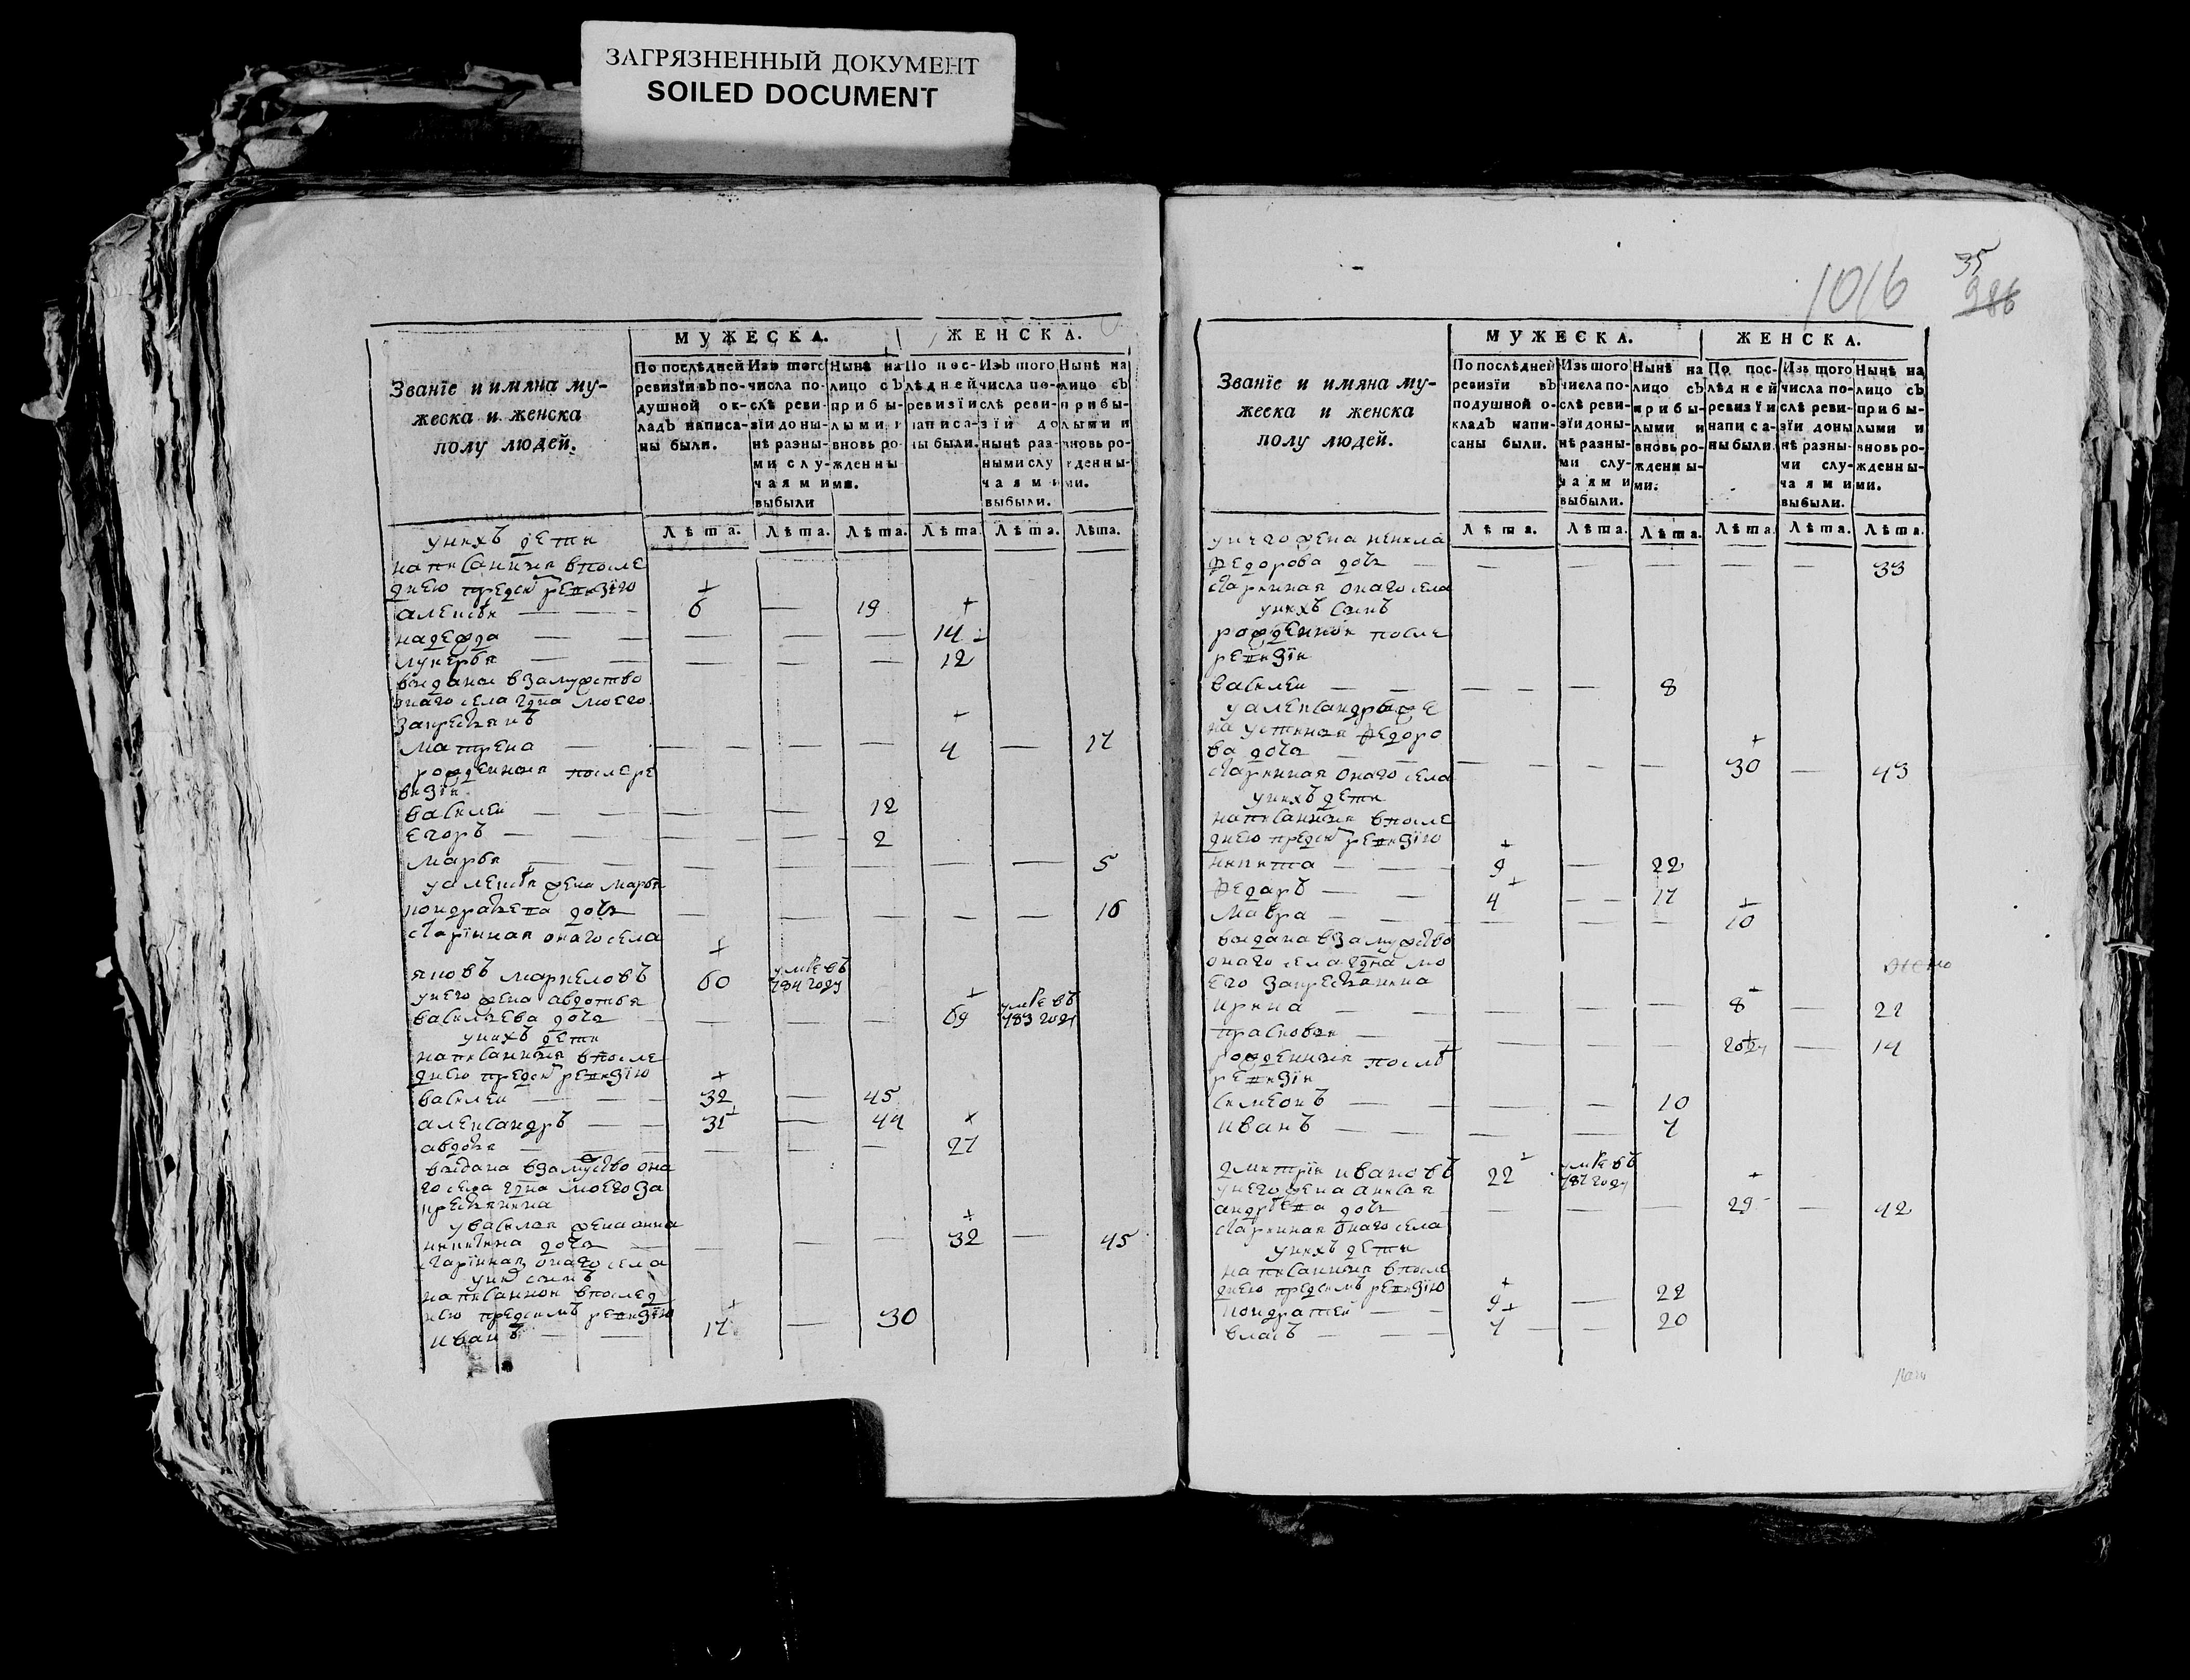 ЗАГРЯЗНЕННЫЙ ДОКУМЕНТ
SOILED DOCUMENT
Званїе и имяна му-
жеска и женска
полу людей.
МУЖЕСКА.
ЖЕНСКА.
По послѣдней
ревизїи въ по-
душной ок-
ладъ написа-
ны были.
Изъ того
числа по-
слѣ реви-
зїи доны-
нѣ разны-
ми слу-
чаями
выбыли
Нынѣ на
лицо съ
прибы-
лыми и
вновь ро-
жденны-
ми.
По пос-
лѣдней
ревизїи
написа-
ны были.
Изъ того
числа по-
слѣ реви-
зїи до
нынѣ раз-
ными слу
чаями
выбыли.
Нынѣ на
лицо съ
прибы-
лыми и
вновь ро-
жденны-
ми.
Лѣта. Лѣта. Лѣта. Лѣта. Лѣта. Лѣта.
у нихъ дети
написанныя в после
днею пред сим ревизїю
алексѣи — 6 — 19
надежда — 14
лукерья — 12
выданы в замужство
онаго села гдна моего
за крестьянъ
матрена — 4 — 17
рожденныя после ре
визїи
василеи — 12
егоръ — 2
марья — 5
у алексѣя жена марья
кондратьева дочь — 16
старїнная онаго села
яковъ маркеловъ 60 умре въ 784 году
у него жена авдотья
васильева дочь — 69 умре въ 783 году
у нихъ дети
написанныя в после
днею пред сим ревизїю
василеи — 32 — 45
александръ — 31 — 44
авдотья — 27
выдана в замужство она
го села гдна моего за
крестьянина
у василья жена анна
никитина дочь — 32 — 45
старїнная онаго села
у них сынъ
написаннои в послед
нею пред симъ ревизїю
иванъ — 17 — 30
1016
35
286
Званїе и имяна му-
жеска и женска
полу людей.
МУЖЕСКА.
ЖЕНСКА.
По послѣдней
ревизїи въ
подушной о-
кладъ напи-
саны были.
Изъ того
числа по-
слѣ реви-
зїи доны-
нѣ разны-
ми слу-
чаями
выбыли.
Нынѣ на
лицо съ
прибы-
лыми и
вновь ро-
жденны-
ми.
По пос-
лѣдней
ревизїи
написа-
ны были.
Изъ того
числа по-
слѣ реви-
зїи доны
нѣ разны-
ми слу-
чаями
выбыли.
Нынѣ на
лицо съ
прибы-
лыми и
вновь ро-
жденны-
ми.
Лѣта. Лѣта. Лѣта. Лѣта. Лѣта. Лѣта.
у него жена
федорова дочь — 33
старинная онаго села
у нихъ сынъ
рожденнои после
ревизїи
василеи — 8
у александры же
на устинья федоро
ва дочь — 30 — 43
старинная онаго села
у нихъ дети
написанныя в после
днею пред сим ревизїю
никита — 9 — 22
федаръ — 4 — 17
мавра — 10
выдана в замужство
онаго села гдна мо
его за крестьянина
ирина — 8 — 21
прасковья — 14
рожденныя послѣ
ревизїи
симеонъ — 10
иванъ — 7
дмитрїи ивановъ 22 умре въ 787 году
у него жена аксинья
андрѣева дочь — 29 — 42
старинная онаго села
у нихъ дети
написанныя в после
днею пред симъ ревизїю
кондратеи — 9 — 22
власъ — 7 — 20